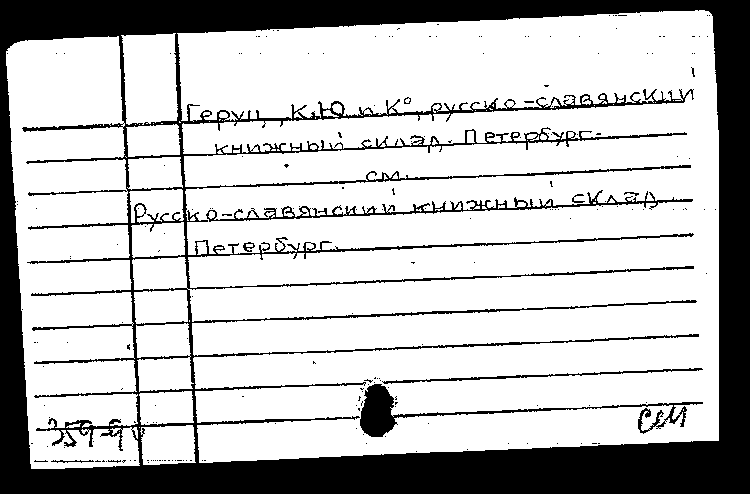 Геруц, К.Ю и К°, русско-славянский
книжный склад. Петербург.
см.
Русско-славянский книжный склад
Петербург.
359-90
см